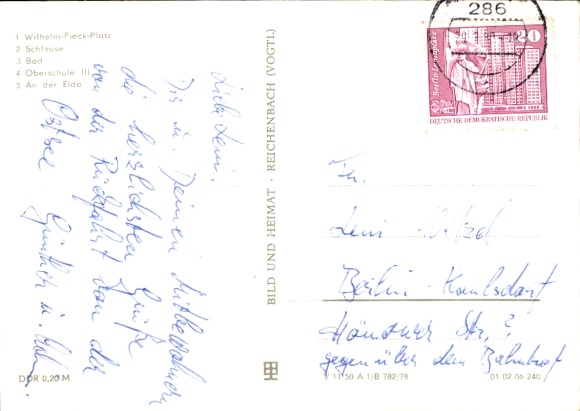 1 Wilhelm-Pieck-Platz
2 Schleuse
3 Bad
4 Oberschule III
5 An der Elde
Liebe Leni!
Dir u. Deinen Mitbewohnern
die herzlichsten Grüße
von der Rückfahrt von der
Ostsee Günther u.
DDR 0,20 M
BILD UND HEIMAT · REICHENBACH (VOGTL)
V 11 50 A 1/B 782/78
01 02 06 240
286
20
Berlin
DEUTSCHE DEMOKRATISCHE REPUBLIK
Fr.
Leni
Berlin-Kaulsdorf
Str. ?
gegenüber dem Bahnhof